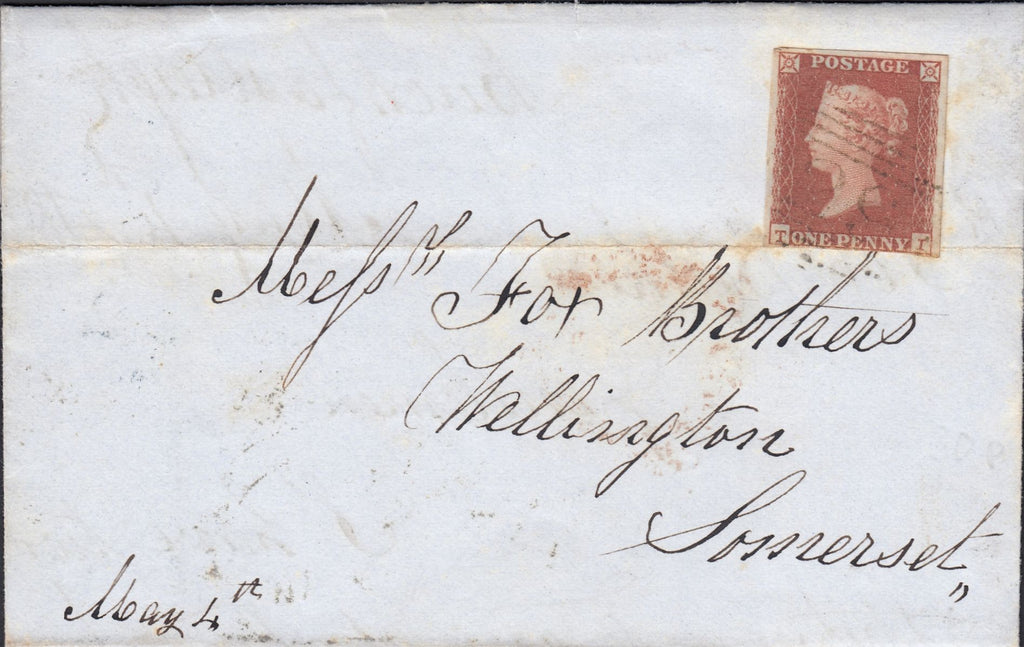 POSTAGE
T ONE PENNY I
Messrs Fox Brothers
Wellington
Somerset„
May 4th